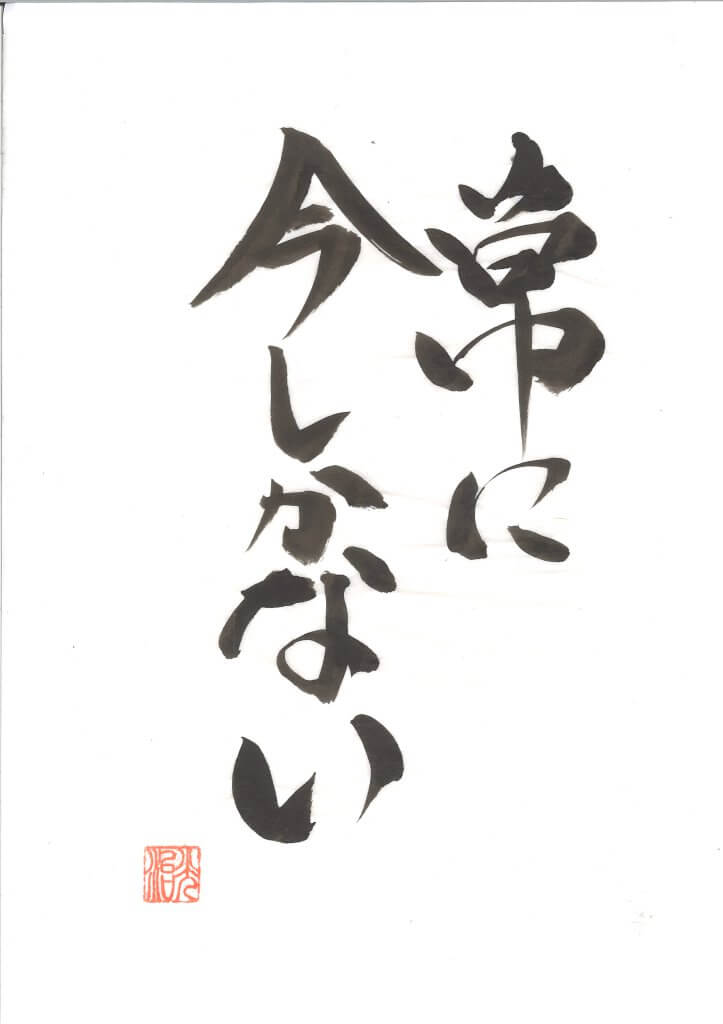 常に
今しかない